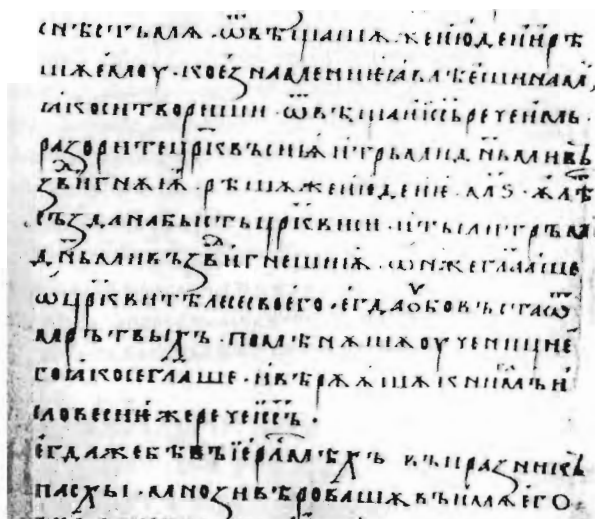 снѣстъмѧ · ѿвѣщашѧжеиюдеиирѣ
шѧемоу · коезнамениеꙗвлѣешинамъ
ꙗкоситвориши · ѿвѣщаиі҃сьреченмь ·
разоритецр҃квьсиѭитрьмидн҃ьмивъ
здвигнѫѭ · рѣшѧжеиюдеие · м҃ѕ · лѣ
създанабыстьцр҃квиси · итылитрьми
дн҃ьмивъздвигнешиѭ · ѡнжегл҃аше
ѡцр҃квителесесвоего · егдаꙋбовъстаѿ
мрътвыхъ · помѣнѫшѧоученицие
гоꙗкосегл҃аше · ивѣрѫѧшѧкнигамъи
словесиежеречеі҃съ ·
егдажебѣвъіер҃лмѣхъ въпразникъ
пасхы · мнозивѣровашѧвъимѧего